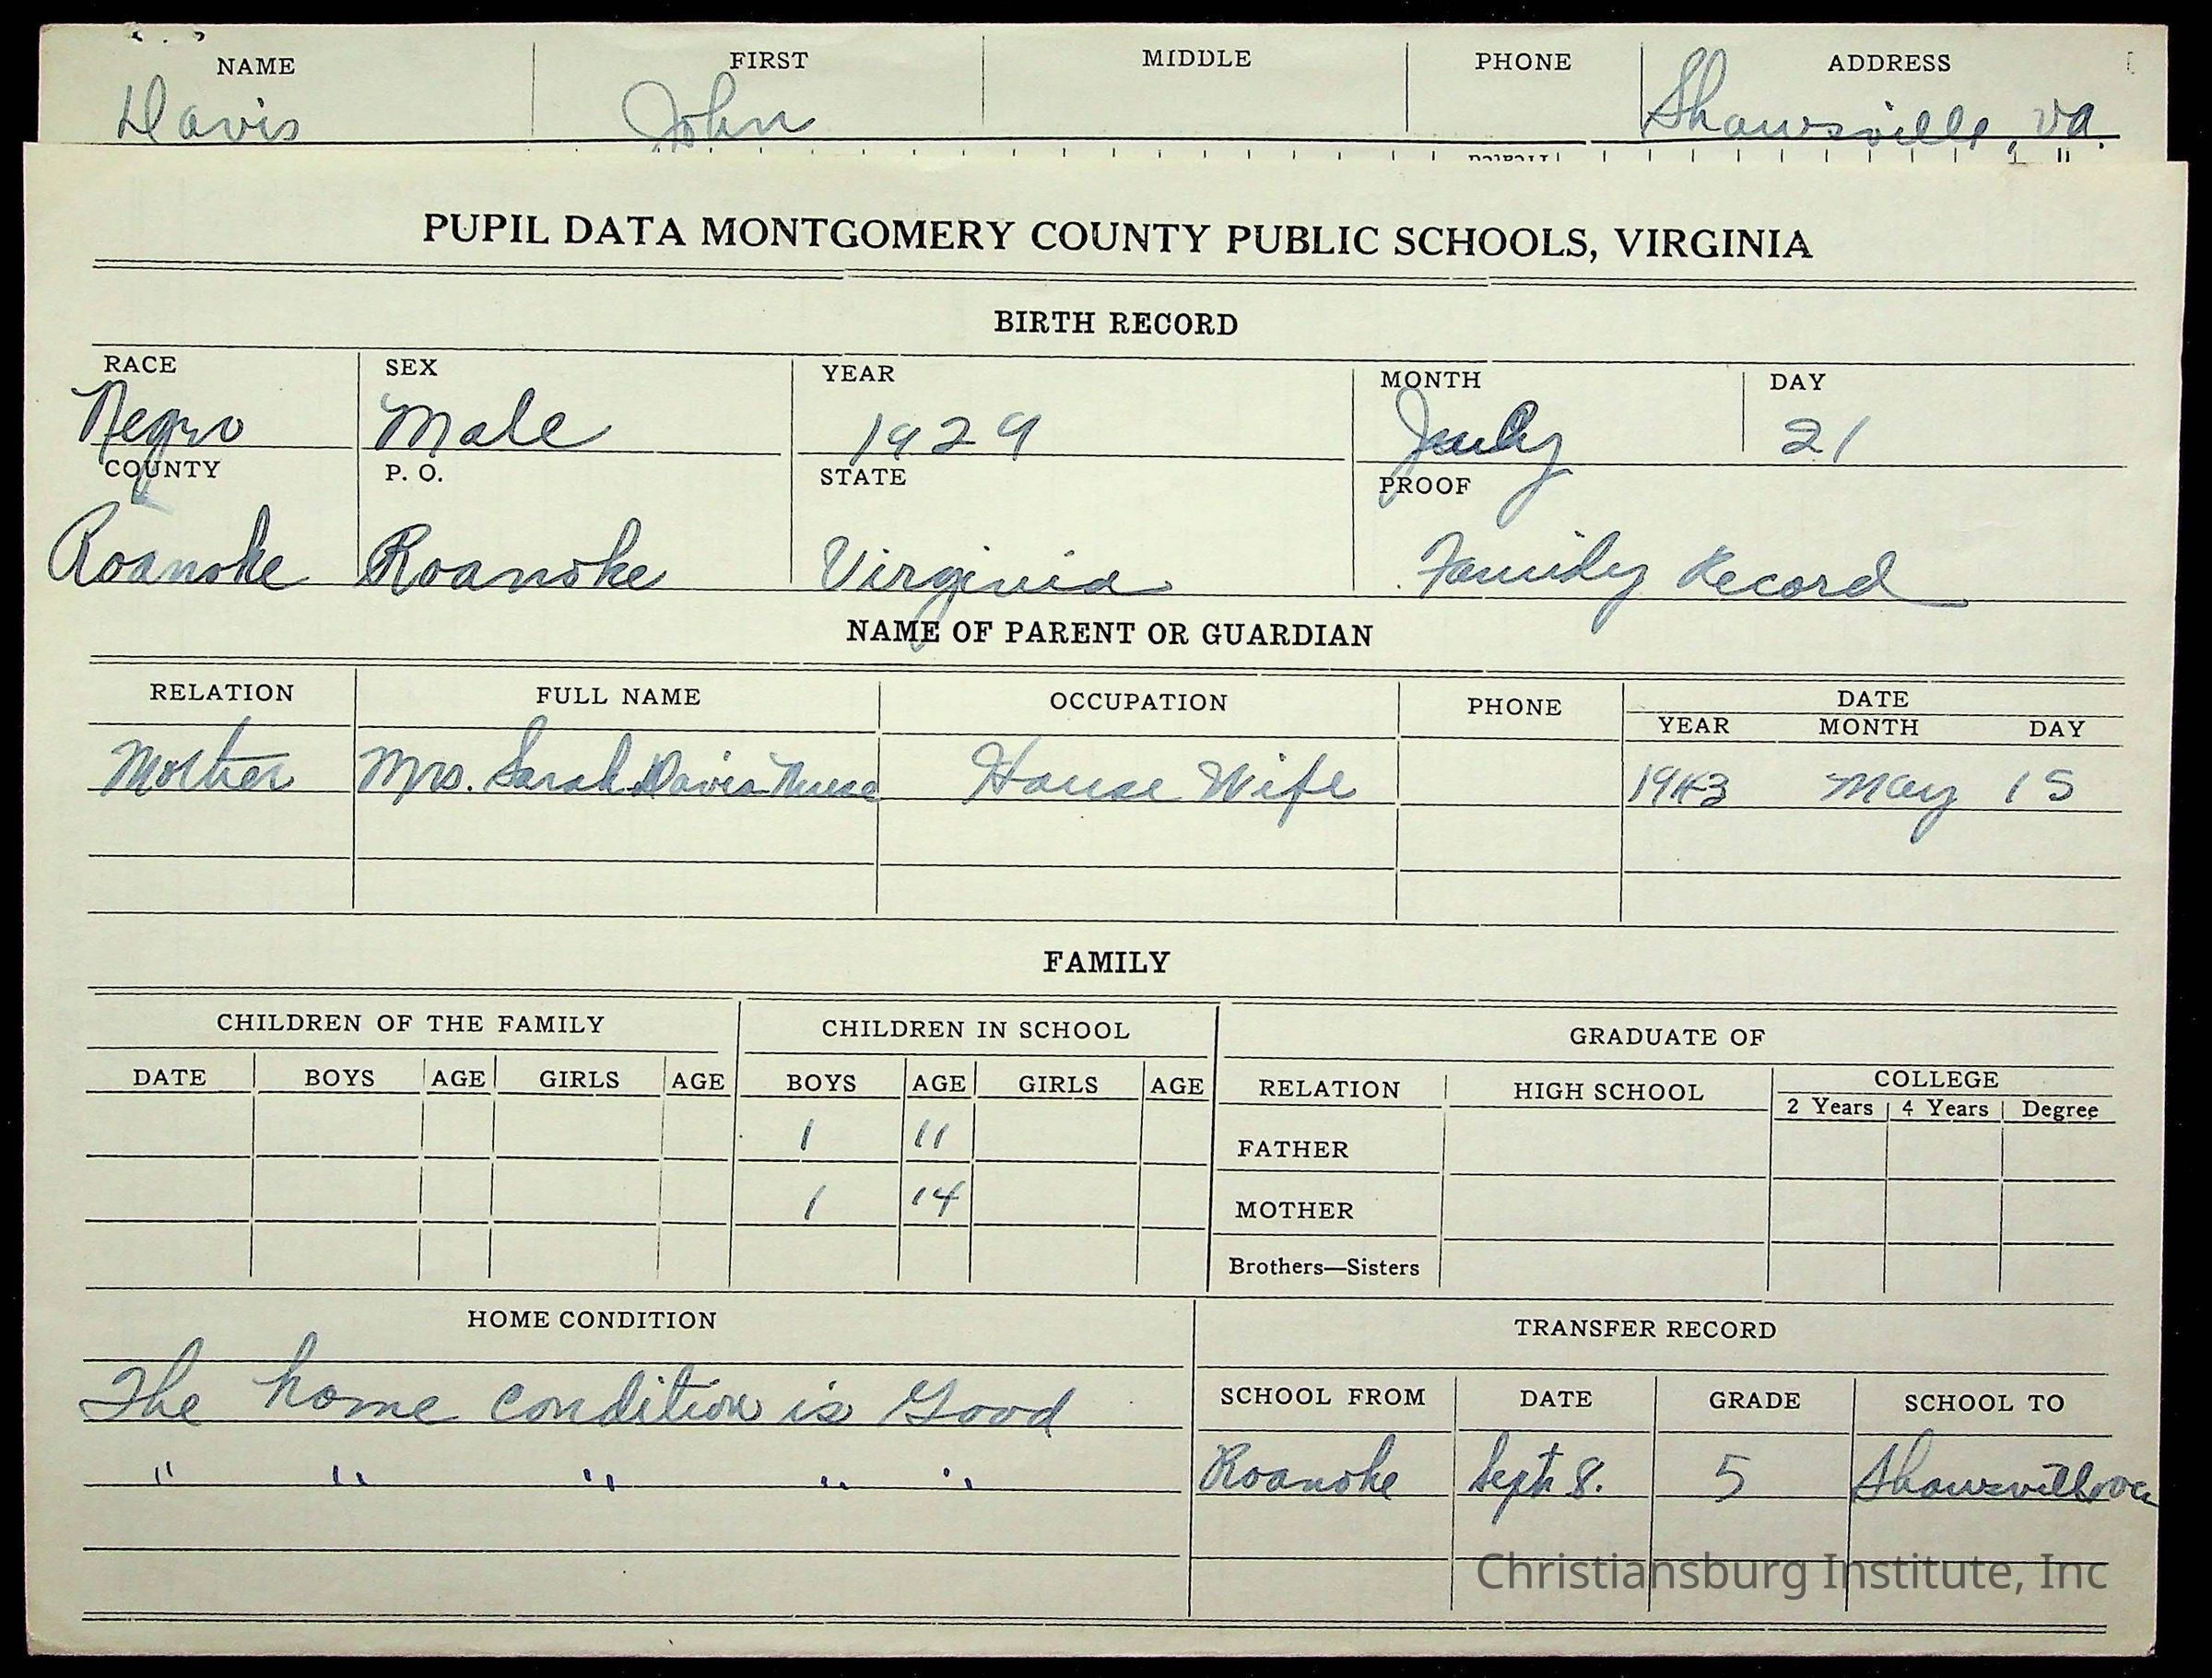 NAME FIRST MIDDLE PHONE ADDRESS
Davis John Shawsville, Va.
PUPIL DATA MONTGOMERY COUNTY PUBLIC SCHOOLS, VIRGINIA
BIRTH RECORD
RACE SEX YEAR MONTH DAY
Negro Male 1929 July 21
COUNTY P. O. STATE PROOF
Roanoke Roanoke Virginia Family Record
NAME OF PARENT OR GUARDIAN
RELATION FULL NAME OCCUPATION PHONE DATE
YEAR MONTH DAY
Mother Mrs. Sarah Davis House Wife 1943 May 15
FAMILY
CHILDREN OF THE FAMILY CHILDREN IN SCHOOL GRADUATE OF
DATE BOYS AGE GIRLS AGE BOYS AGE GIRLS AGE RELATION HIGH SCHOOL COLLEGE
2 Years 4 Years Degree
1 11 FATHER
1 14 MOTHER
Brothers—Sisters
HOME CONDITION TRANSFER RECORD
The home condition is Good
SCHOOL FROM DATE GRADE SCHOOL TO
" " " " " Roanoke Sept 8. 5 Shawsville va
Christiansburg Institute, Inc